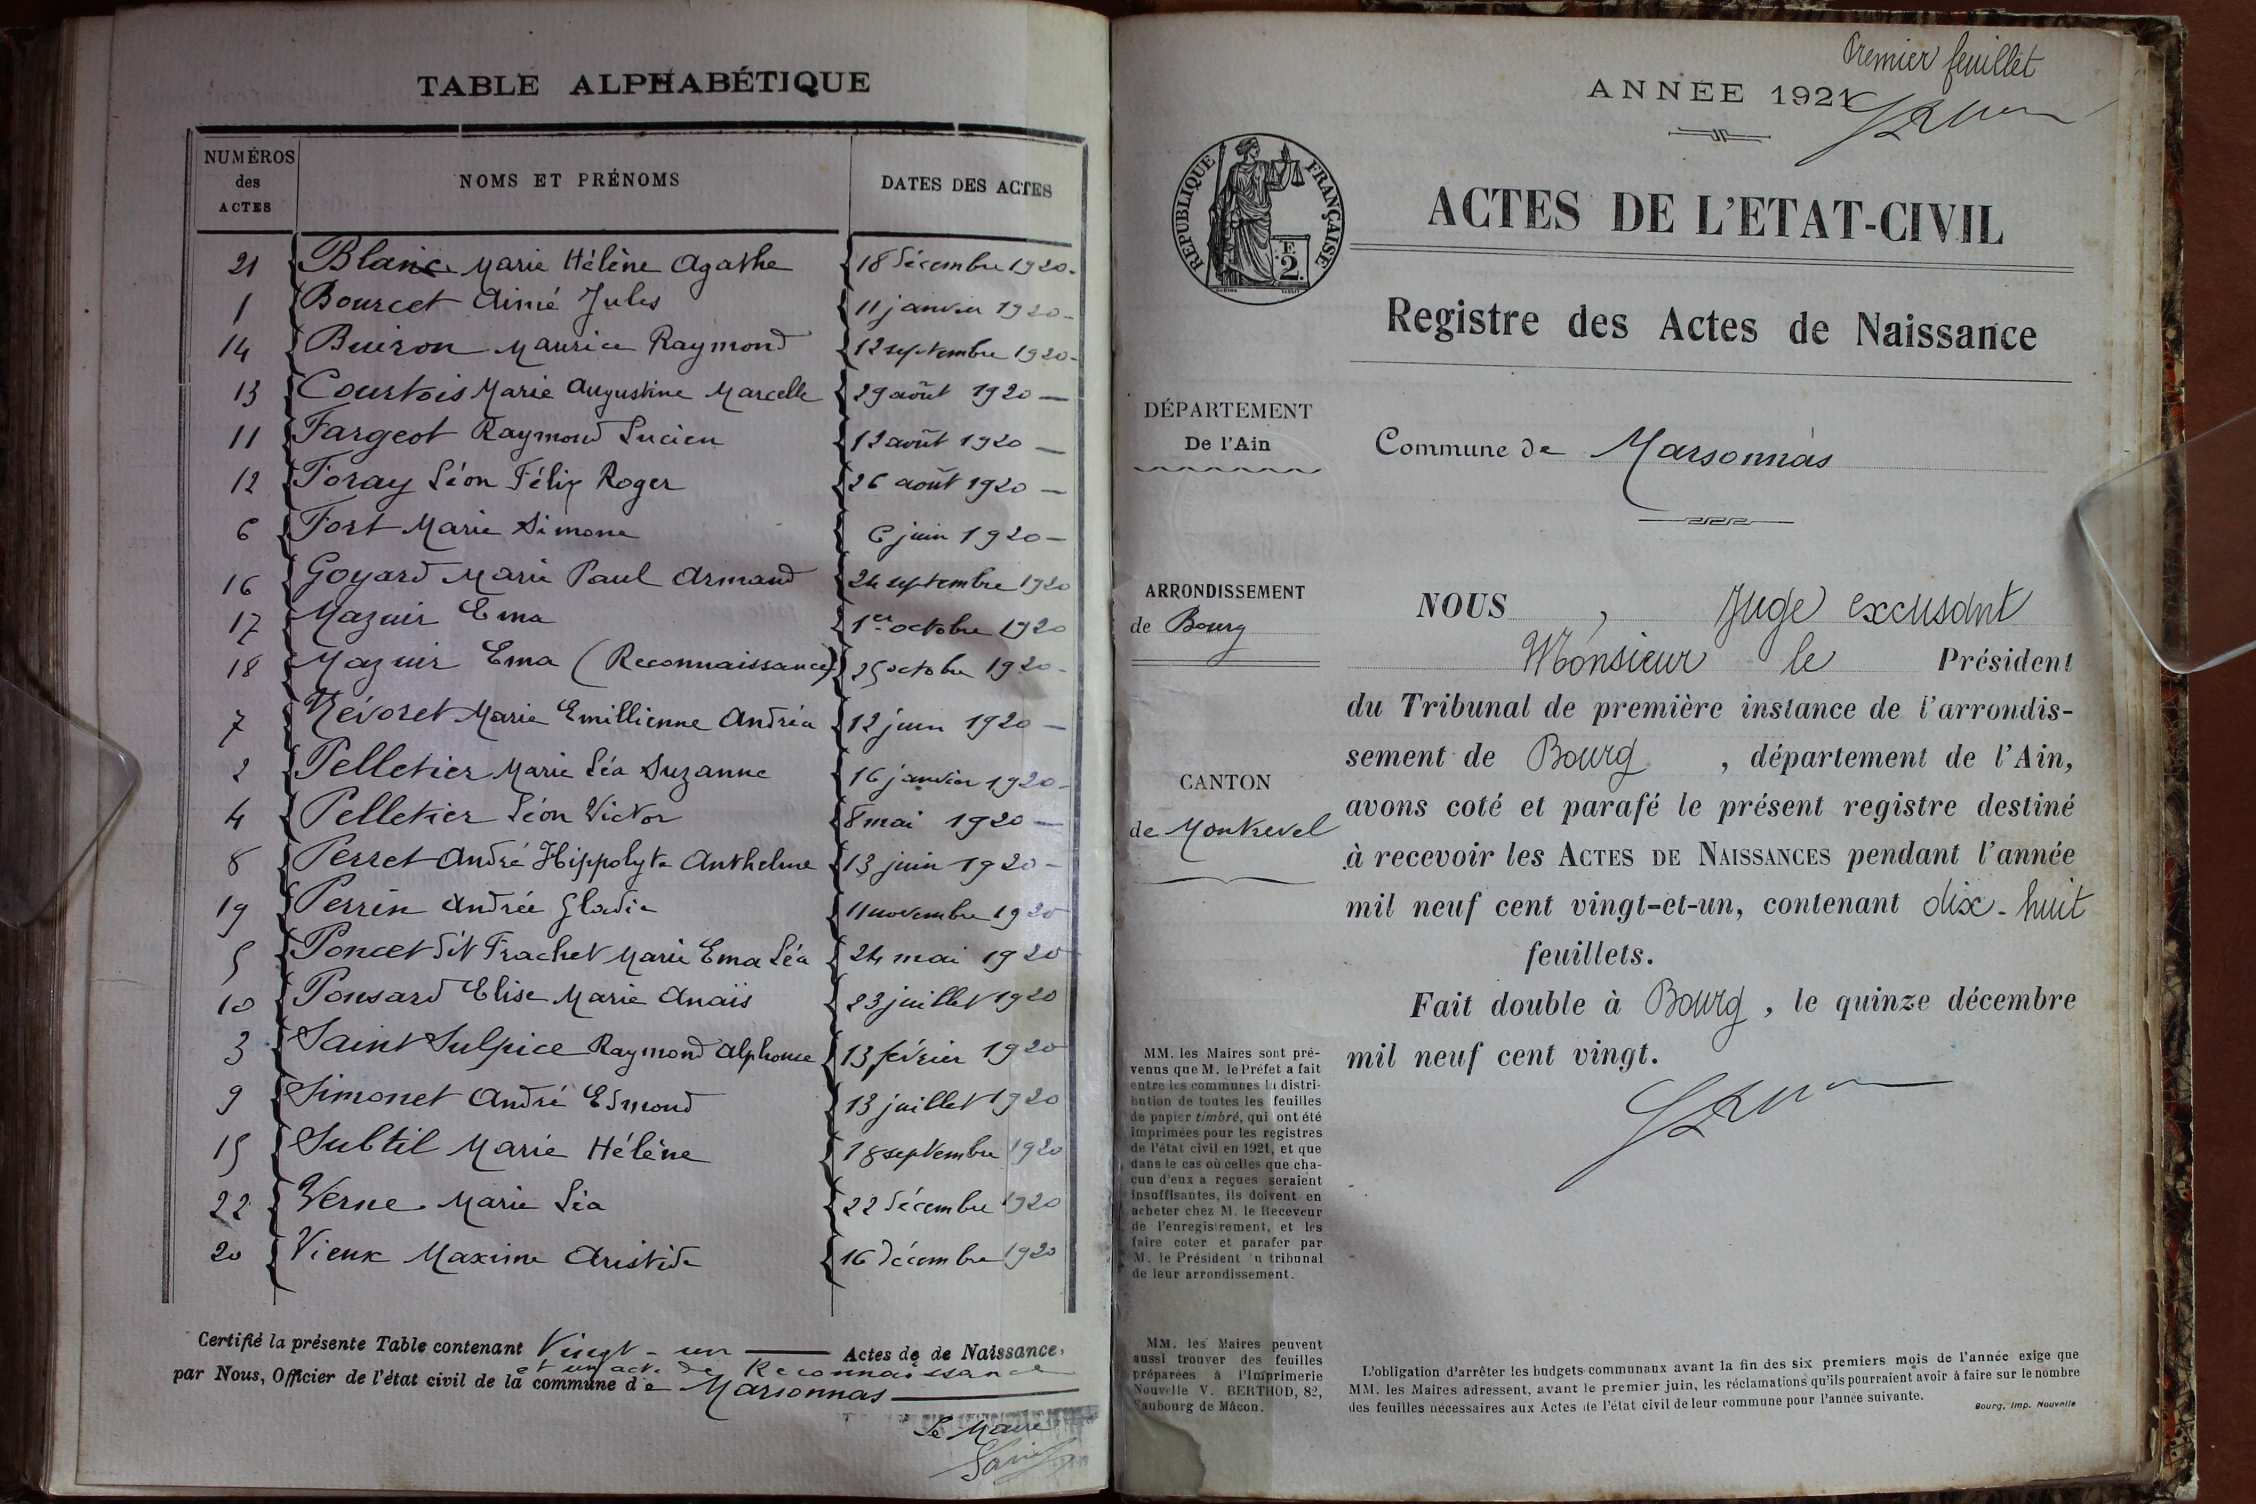 TABLE ALPHABÉTIQUE
NUMÉROS des ACTES NOMS ET PRÉNOMS DATES DES ACTES
21 Blanc Marie Hélène Agathe 18 Décembre 1920
1 Bourcet Aimé Jules 11 janvier 1920
14 Buiron Maurice Raymond 12 septembre 1920
13 Courtois Marie Augustine Marcelle 29 août 1920
11 Fargeot Raymond Lucien 12 août 1920
12 Foray Léon Félix Roger 26 août 1920
6 Fort Marie Simone 6 juin 1920
16 Goyard Marie Paul Armand 24 septembre 1920
17 Mazuir Ema 1er octobre 1920
18 Mazuir Ema (Reconnaissance) 25 octobre 1920
7 Névoret Marie Emillienne Andréa 12 juin 1920
2 Pelletier Marie Léa Suzanne 16 janvier 1920
4 Pelletier Léon Victor 8 mai 1920
8 Perret André Hippolyte Anthelme 13 juin 1920
19 Perrin Andrée Gladie 11 novembre 1920
5 Poncet dit Trachet Marie Ema Léa 24 mai 1920
10 Ponsard Elise Marie Anaïs 23 juillet 1920
3 Saint Sulpice Raymond Alphonse 13 février 1920
9 Simonet André Edmond 13 juillet 1920
15 Subtil Marie Hélène 18 septembre 1920
22 Verne Marie Léa 22 Décembre 1920
20 Vieux Maxime Aristide 16 décembre 1920
Certifié la présente Table contenant Vingt-un Actes de de Naissance,
et un acte de Reconnaissance
par Nous, Officier de l'état civil de la commune de Marsonnas
Le Maire
Premier feuillet
ANNÉE 1921
RÉPUBLIQUE FRANÇAISE
E
2
ACTES DE L'ETAT-CIVIL
Registre des Actes de Naissance
DÉPARTEMENT
De l'Ain
Commune de Marsonnas
ARRONDISSEMENT
de Bourg
CANTON
de Montrevel
NOUS , Juge excusant
Monsieur le Président
du Tribunal de première instance de l'arrondis-
sement de Bourg , département de l'Ain,
avons coté et parafé le présent registre destiné
à recevoir les ACTES DE NAISSANCES pendant l'année
mil neuf cent vingt-et-un, contenant dix-huit
feuillets.
Fait double à Bourg , le quinze décembre
mil neuf cent vingt.
MM. les Maires sont pré-
venus que M. le Préfet a fait
entre les communes la distri-
bution de toutes les feuilles
de papier timbré, qui ont été
imprimées pour les registres
de l'état civil en 1921, et que
dans le cas où celles que cha-
cun d'eux a reçues seraient
insuffisantes, ils doivent en
acheter chez M. le Receveur
de l'enregistrement, et les
faire coter et parafer par
M. le Président u tribunal
de leur arrondissement.
MM. les Maires peuvent
aussi trouver des feuilles
préparées à l'Imprimerie
Nouvelle V. BERTHOD, 82,
Faubourg de Mâcon.
L'obligation d'arrêter les budgets communaux avant la fin des six premiers mois de l'année exige que
MM. les Maires adressent, avant le premier juin, les réclamations qu'ils pourraient avoir à faire sur le nombre
des feuilles nécessaires aux Actes de l'état civil de leur commune pour l'année suivante.
Bourg, Imp. Nouvelle